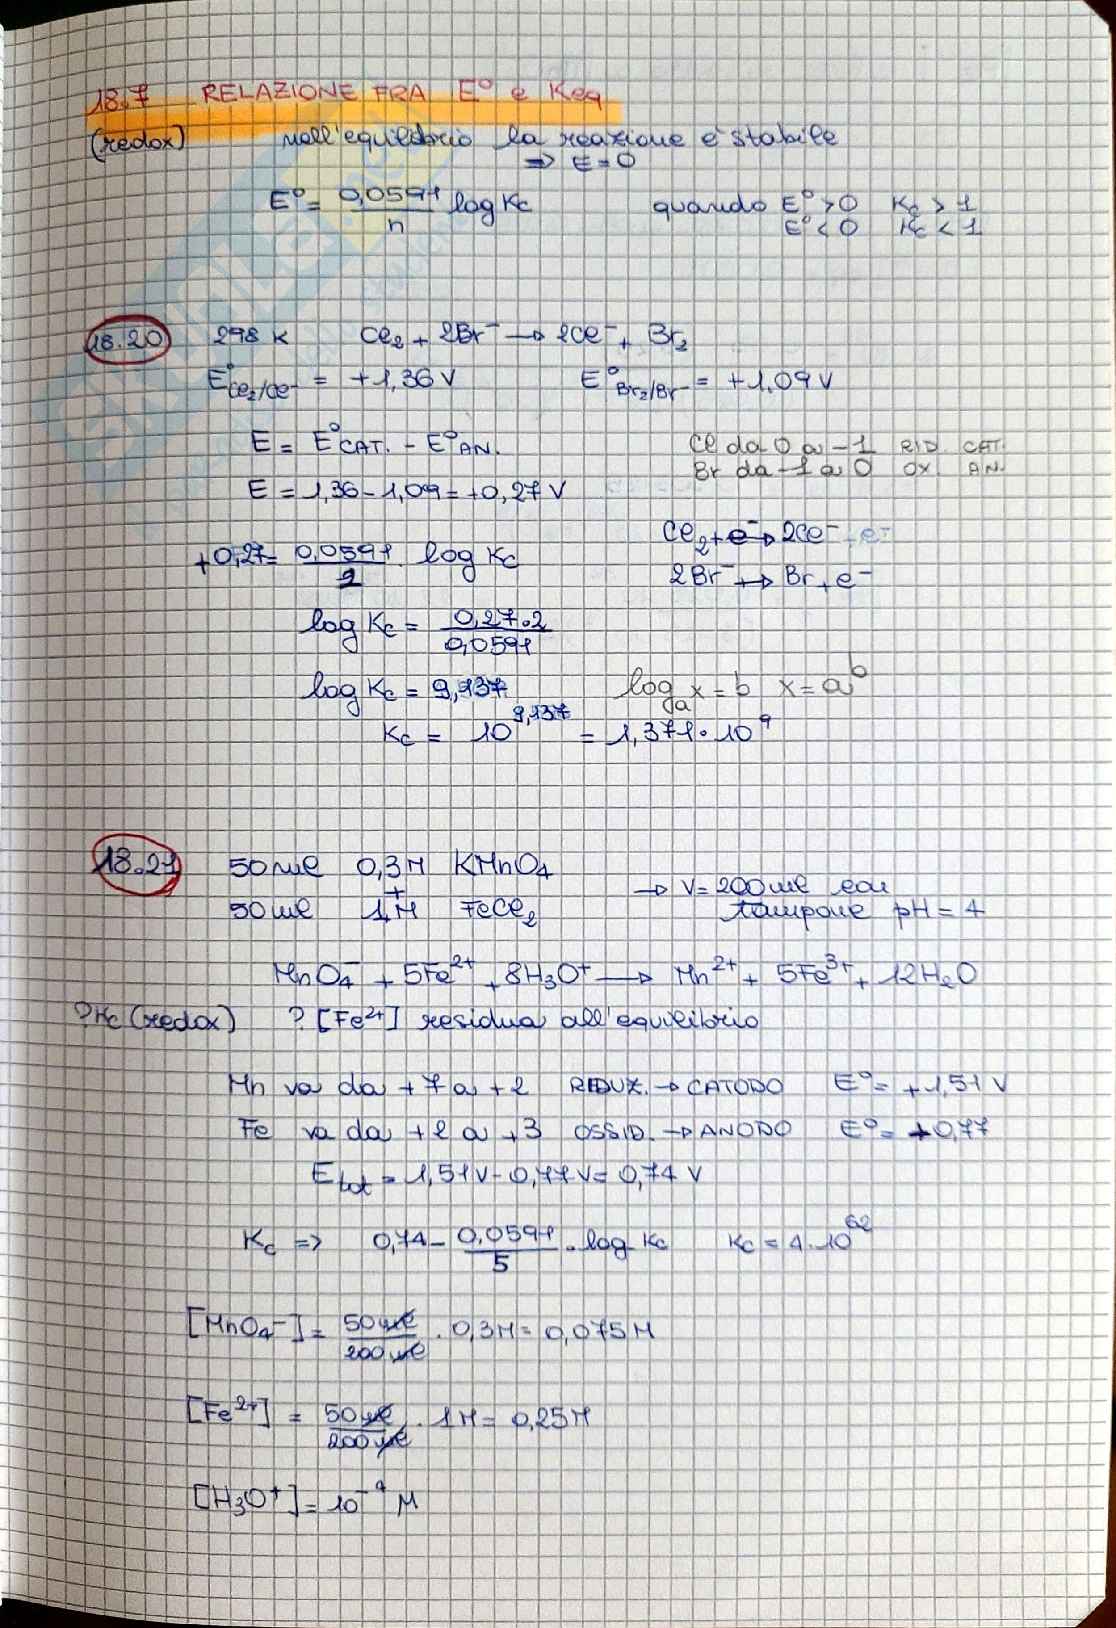 18.7 RELAZIONE FRA E° e Keq
(redox) nell'equilibrio la reazione è stabile
⇒ E = 0
E° = 0,0591/n log Kc quando E° > 0 Kc > 1
E° < 0 Kc < 1
18.20 298 K Cl₂ + 2Br⁻ → 2Cl⁻ + Br₂
E°Cl₂/Cl⁻ = +1,36 V E°Br₂/Br⁻ = +1,09 V
E = E°CAT. - E°AN. Cl da 0 a -1 RID. CAT.
Br da -1 a 0 OX. AN.
E = 1,36 - 1,09 = +0,27 V
Cl₂ + e⁻ → 2Cl⁻ + e⁻
+0,27 = 0,0591/2 . log Kc
2Br⁻ → Br + e⁻
log Kc = 0,27.2/0,0591
log Kc = 9,137 logₐ x = b x = aᵇ
Kc = 10^9,137 = 1,371 . 10⁹
18.21 50 ml 0,3 M KMnO₄
+ → V = 200 ml con
50 ml 1 M FeCl₂ tampone pH = 4
MnO₄⁻ + 5Fe²⁺ + 8H₃O⁺ → Mn²⁺ + 5Fe³⁺ + 12H₂O
? Kc (redox) ? [Fe²⁺] residua all'equilibrio
Mn va da +7 a +2 REDUZ. → CATODO E° = +1,51 V
Fe va da +2 a +3 OSSID. → ANODO E° = +0,77
E tot = 1,51 V - 0,77 V = 0,74 V
Kc ⇒ 0,74 - 0,0591/5 . log Kc Kc = 4.10⁶²
[MnO₄⁻] = 50 ml/200 ml . 0,3 M = 0,075 M
[Fe²⁺] = 50 ml/200 ml . 1 M = 0,25 M
[H₃O⁺] = 10⁻⁴ M